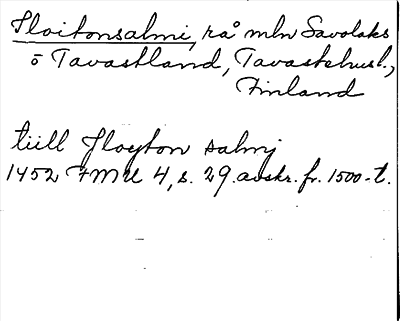 Iloitonsalmi, rå mln Savolaks
o Tavastland, Tavastehusl.,
Finland
tiill Jloyton salmj
1452 FMU 4, s. 29. avskr. fr. 1500-t.